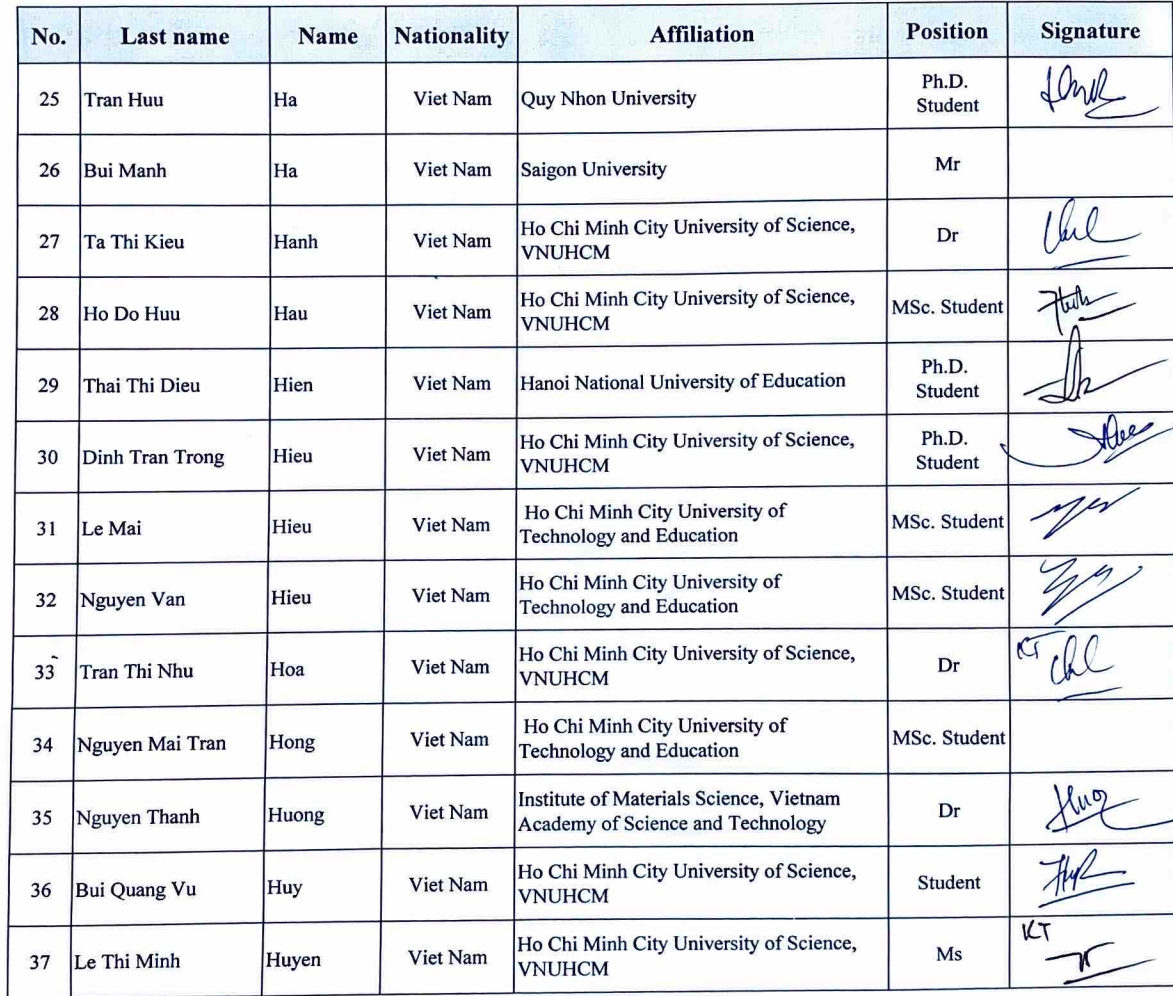 No. Last name Name Nationality Affiliation Position Signature
25 Tran Huu Ha Viet Nam Quy Nhon University Ph.D.
Student
26 Bui Manh Ha Viet Nam Saigon University Mr
27 Ta Thi Kieu Hanh Viet Nam Ho Chi Minh City University of Science,
VNUHCM Dr
28 Ho Do Huu Hau Viet Nam Ho Chi Minh City University of Science,
VNUHCM MSc. Student
29 Thai Thi Dieu Hien Viet Nam Hanoi National University of Education Ph.D.
Student
30 Dinh Tran Trong Hieu Viet Nam Ho Chi Minh City University of Science,
VNUHCM Ph.D.
Student
31 Le Mai Hieu Viet Nam Ho Chi Minh City University of
Technology and Education MSc. Student
32 Nguyen Van Hieu Viet Nam Ho Chi Minh City University of
Technology and Education MSc. Student
33 Tran Thi Nhu Hoa Viet Nam Ho Chi Minh City University of Science,
VNUHCM Dr KT
34 Nguyen Mai Tran Hong Viet Nam Ho Chi Minh City University of
Technology and Education MSc. Student
35 Nguyen Thanh Huong Viet Nam Institute of Materials Science, Vietnam
Academy of Science and Technology Dr
36 Bui Quang Vu Huy Viet Nam Ho Chi Minh City University of Science,
VNUHCM Student
37 Le Thi Minh Huyen Viet Nam Ho Chi Minh City University of Science,
VNUHCM Ms KT